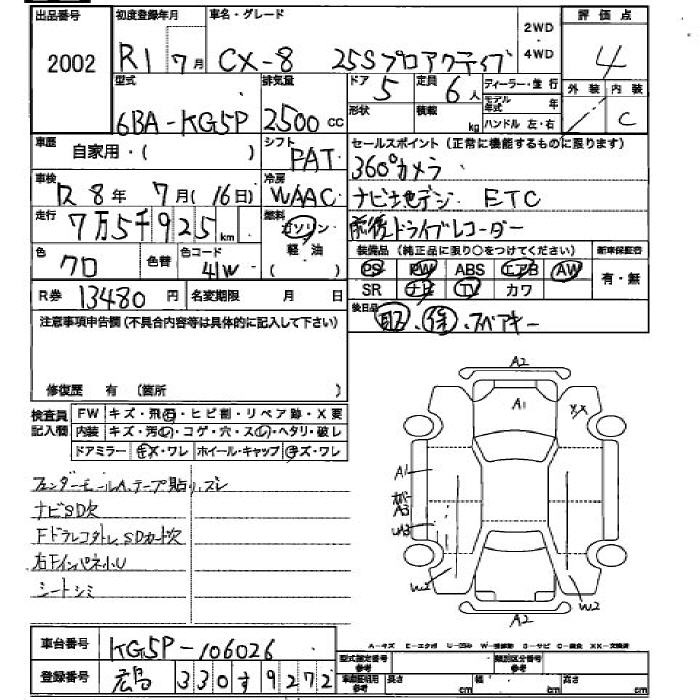 出品番号 初度登録年月 車名・グレード 2WD 評価点
2002 R1 7月 CX-8 25Sプロアクティブ 4WD 4
型式 排気量 ドア 定員 ディーラー・並行 外装 内装
6BA-KG5P 2500cc 5 6人 モデル年式 年 C
形状 積載 kg ハンドル 左・右
車歴 自家用・( ) シフト セールスポイント(正常に機能するものに限ります)
FAT 360°カメラ
車検 R8年 7月(16日) 冷房 WAAC ナビ地デジ ETC
走行 7万5千925km 燃料 ガソリン 前後ドライブレコーダー
軽油 ( ) 装備品(純正品に限り○をつけてください) 新車保証書
色 クロ 色替 色コード 41W PS PW ABS エアB AW 有・無
R券 13480円 名変期限 月 日 SR ナビ TV カワ
注意事項申告欄(不具合内容等は具体的に記入して下さい) 後日品 取・保・スペアキー
修復歴 有 (箇所 )
検査員記入欄 FW キズ・飛石・ヒビ割・リペア跡・X要
内装 キズ・汚レ・コゲ・穴・スレ・ヘタリ・破レ
ドアミラー キズ・ワレ ホイール・キャップ キズ・ワレ
フェンダーモールA、テープ貼り、ズレ
ナビSD欠
FドラレコタトレSDカード欠
右Fインパネ小U
シートシミ
A2
A1
XX
A1
A3
W2
W2
A2
車台番号 KG5P-106026
登録番号 広島 330す9272
A-キズ E-エクボ U-凹み W-補修跡 S-サビ C-腐食 XX-交換済
型式指定番号 参考 類別区分番号 参考
車両諸元 参考 長さ cm 幅 cm 高さ cm